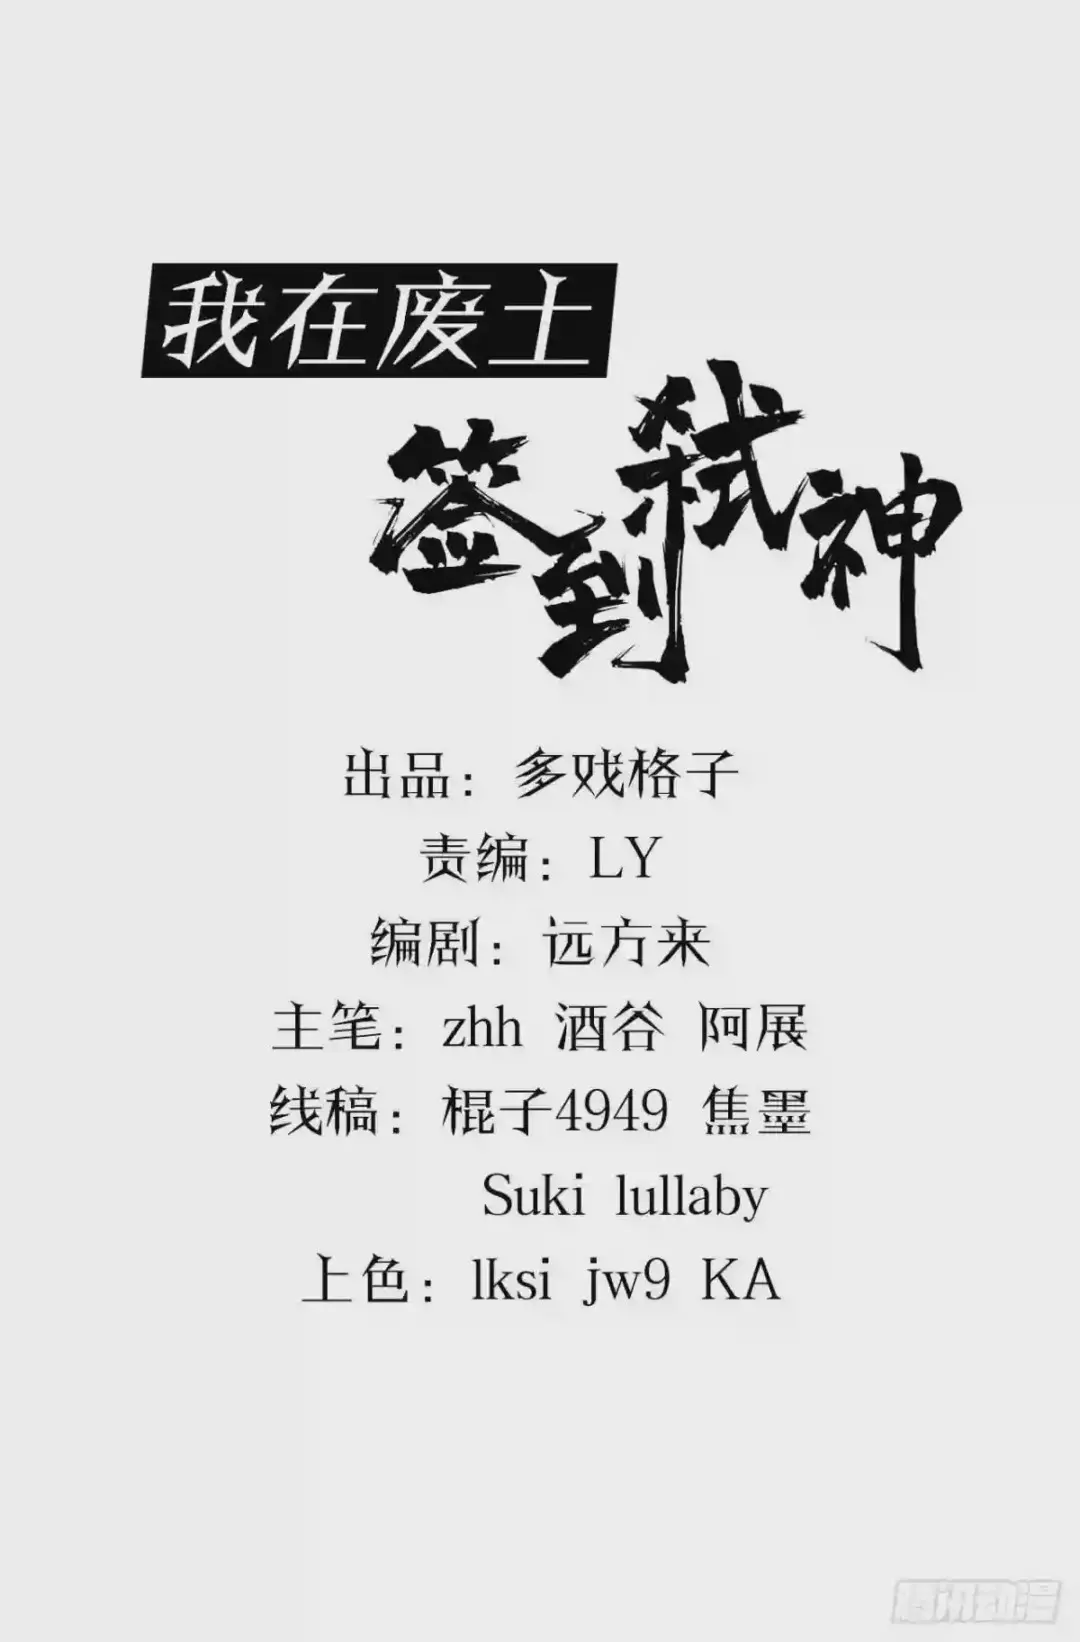 我在废土
签到弑神
出品：多戏格子
责编：LY
编剧：远方来
主笔：zhh 酒谷 阿展
线稿：棍子4949 焦墨
Suki lullaby
上色：lksi jw9 KA
腾讯动漫